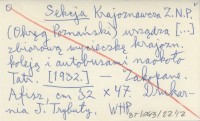 Sekcja Krajoznawcza Z.N.P.
(Okręg Poznański) urządza [...]
zbiorową wycieczkę krajozn.
koleją i autobusami naokoło
Tatr, [1932.] — Zakopane.
Afisz, cm 32 × 47 Drukar-
nia J. Trybuły, WHP